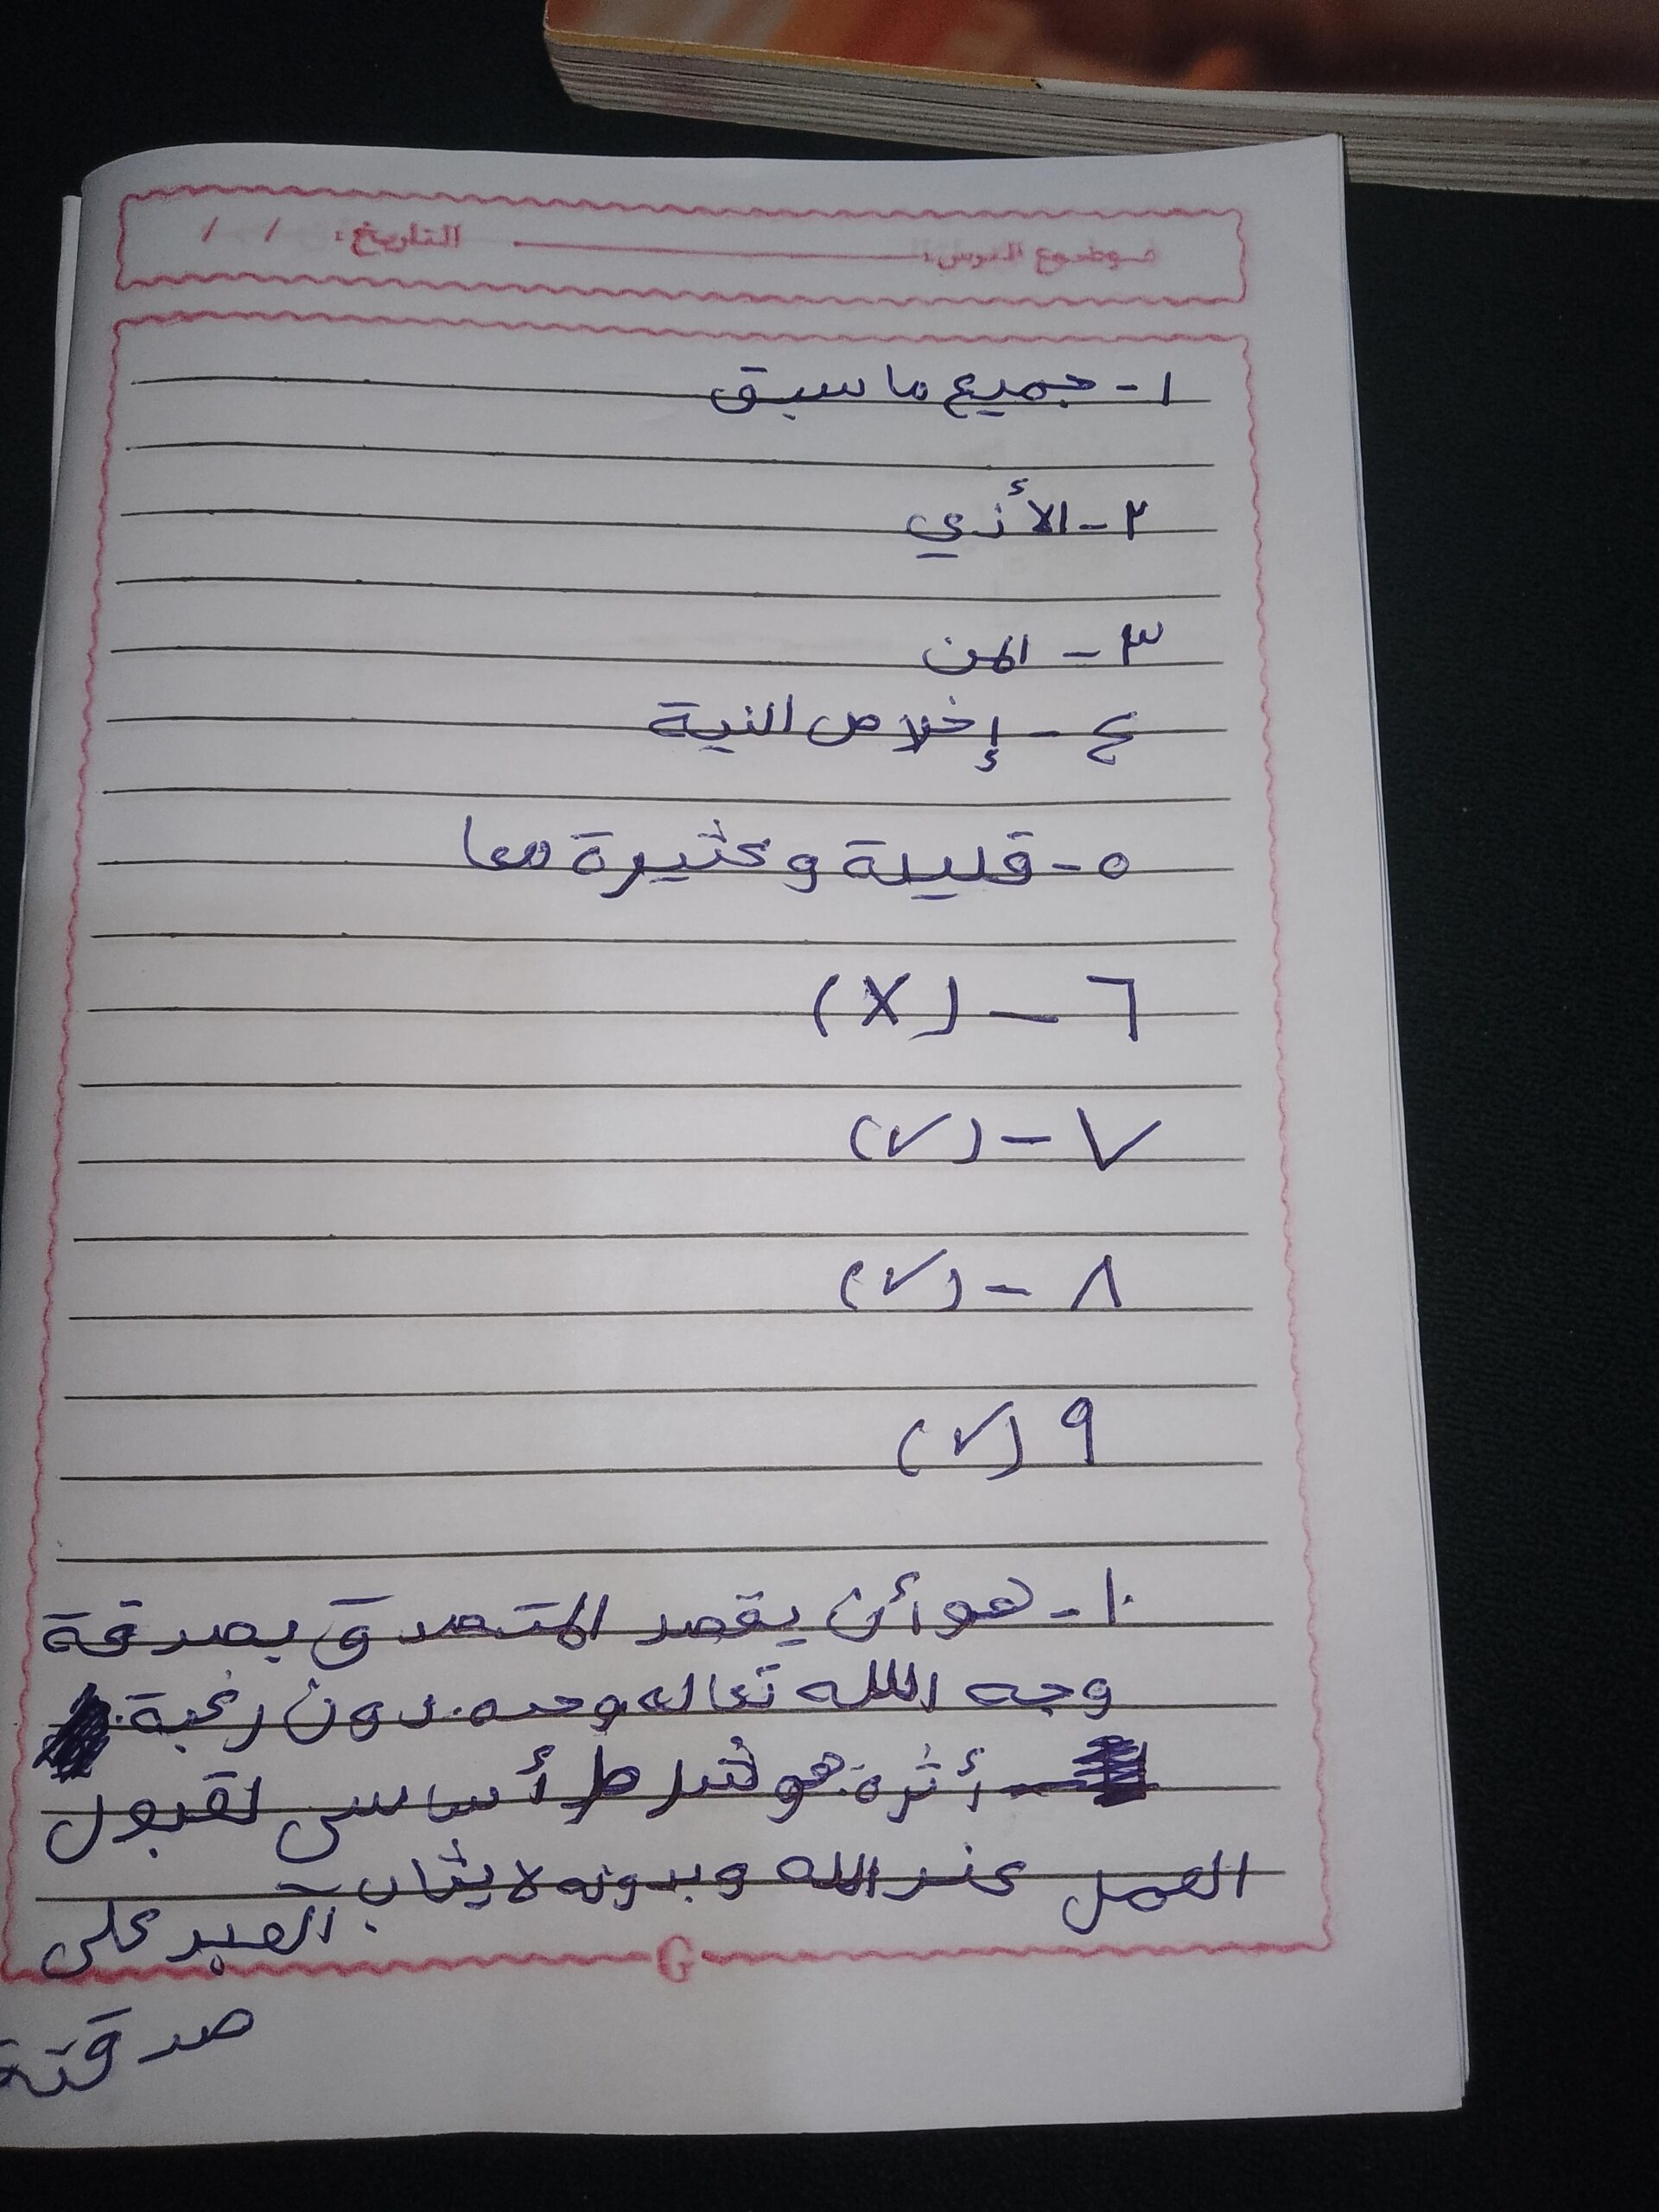 موضوع الدرس: التاريخ: / /
١- جميع ما سبق
٢- الأذي
٣- المن
٤- إخلاص النية
٥- قليلة وكثيرة معا
٦- (X)
٧- (✓)
٨- (✓)
٩ (✓)
١٠- هو أن يقصد المتصدق بصدقة
وجه الله تعاله وحده. دون رغبة.
أثرة: هو شرط أساسى لقبول
العمل عند الله وبدونه لا يثاب العبد على
صدقتة
G